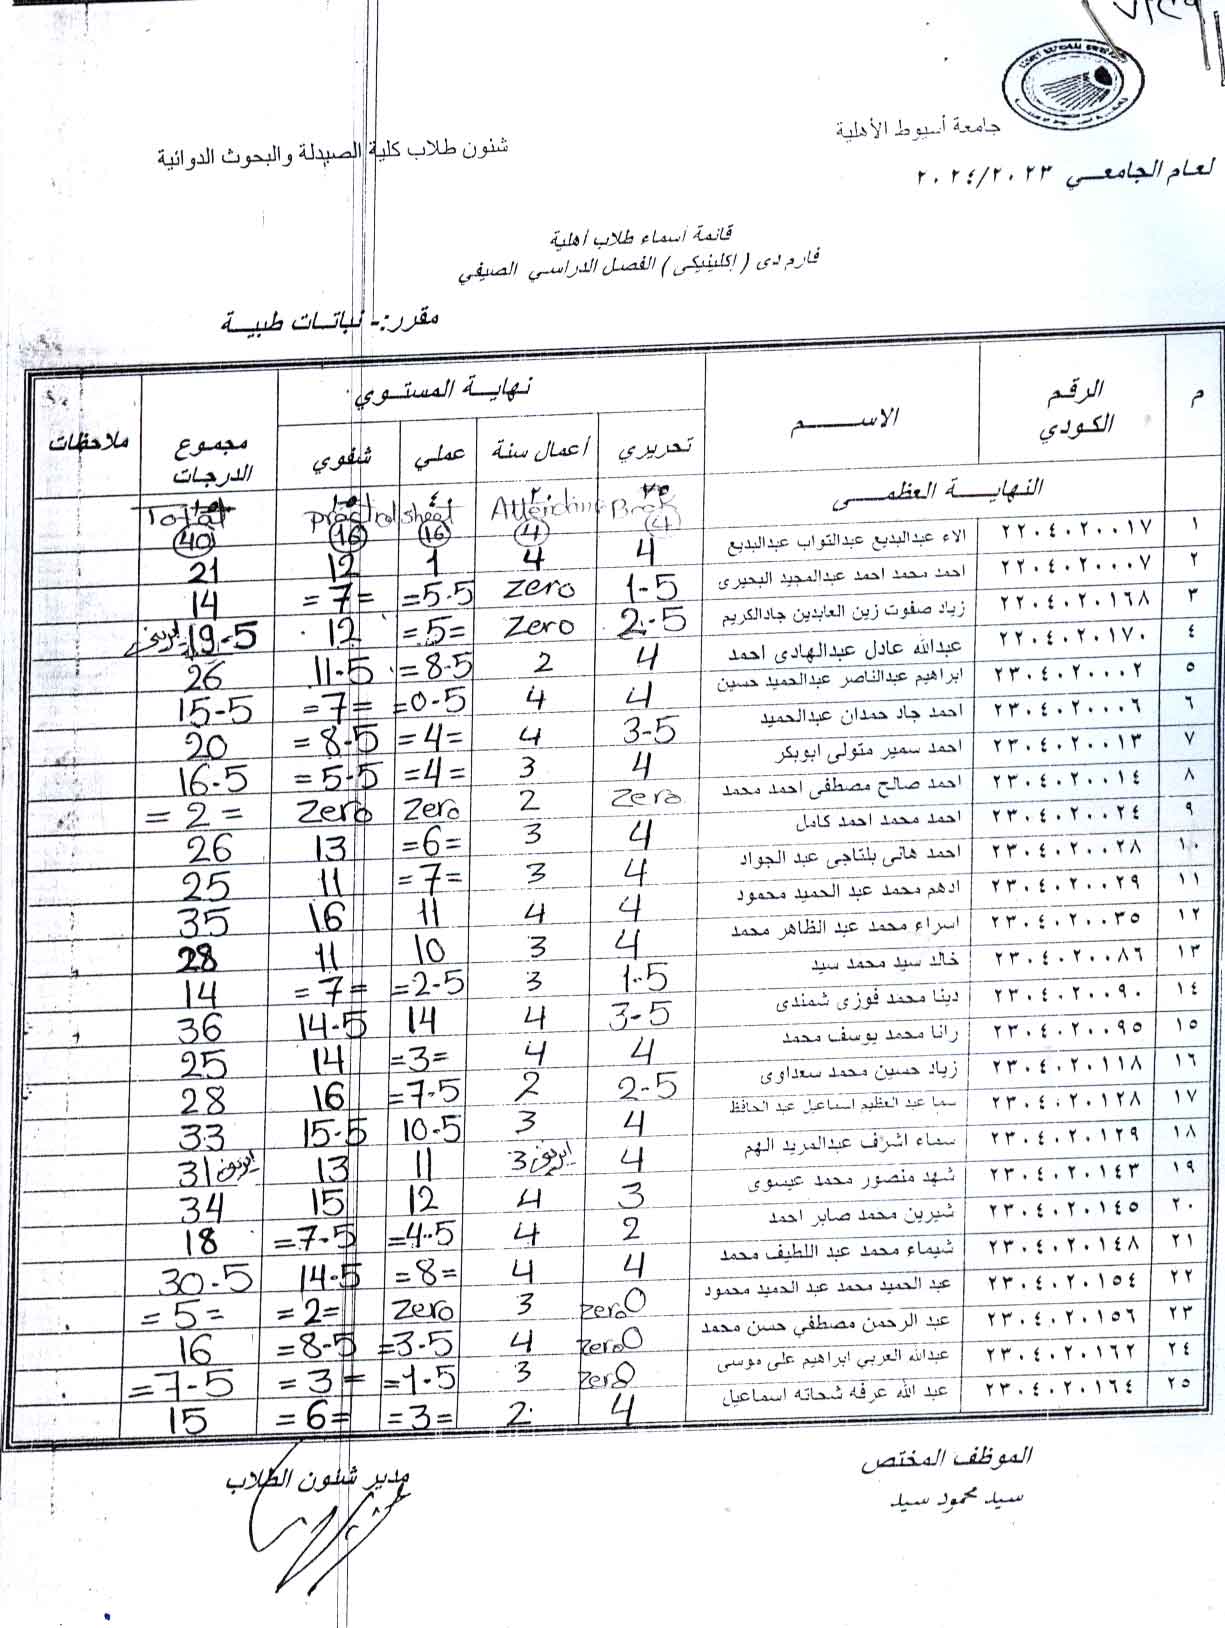 جامعة أسيوط الأهلية
شئون طلاب كلية الصيدلة والبحوث الدوائية
لعام الجامعي ٢٠٢٤/٢٠٢٣
قائمة أسماء طلاب أهلية
فارم دى (إكلينيكى) الفصل الدراسي الصيفي
مقرر:- نباتات طبية
م الرقم الكودي الاســـم نهاية المستوي مجموع الدرجات ملاحظات
تحريري أعمال سنة عملي شفوي
النهاية العظمى
(4) (4) sheet (16) Practical (16) Total (40)
١ ٢٢٠٤٠٢٠٠١٧ الاء عبدالبديع عبدالتواب عبدالبديع 4 4 1 12 21
٢ ٢٢٠٤٠٢٠٠٠٧ احمد محمد احمد عبدالمجيد البحيرى 1-5 zero =5.5 =7= 14
٣ ٢٢٠٤٠٢٠١٦٨ زياد صفوت زين العابدين جادالكريم 2-5 zero =5= 12 19-5
٤ ٢٢٠٤٠٢٠١٧٠ عبدالله عادل عبدالهادى احمد 4 2 =8-5 11-5 26
٥ ٢٣٠٤٠٢٠٠٠٢ ابراهيم عبدالناصر عبدالحميد حسين 4 4 =0-5 =7= 15-5
٦ ٢٣٠٤٠٢٠٠٠٦ احمد جاد حمدان عبدالحميد 3-5 4 =4= =8-5 20
٧ ٢٣٠٤٠٢٠٠١٣ احمد سمير متولى ابوبكر 4 3 =4= =5-5 16-5
٨ ٢٣٠٤٠٢٠٠١٤ احمد صالح مصطفى احمد محمد zero 2 zero zero =2=
٩ ٢٣٠٤٠٢٠٠٢٤ احمد محمد احمد كامل 4 3 =6= 13 26
١٠ ٢٣٠٤٠٢٠٠٢٨ احمد هانى بلتاجى عبد الجواد 4 3 =7= 11 25
١١ ٢٣٠٤٠٢٠٠٢٩ ادهم محمد عبد الحميد محمود 4 4 11 16 35
١٢ ٢٣٠٤٠٢٠٠٣٥ اسراء محمد عبد الظاهر محمد 4 3 10 11 28
١٣ ٢٣٠٤٠٢٠٠٨٦ خالد سيد محمد سيد 1-5 3 =2-5 =7= 14
١٤ ٢٣٠٤٠٢٠٠٩٠ دينا محمد فوزى شمندى 3-5 4 14 14-5 36
١٥ ٢٣٠٤٠٢٠٠٩٥ رانا محمد يوسف محمد 4 4 =3= 14 25
١٦ ٢٣٠٤٠٢٠١١٨ زياد حسين محمد سعداوى 2-5 2 =7-5 16 28
١٧ ٢٣٠٤٠٢٠١٢٨ سما عبد العظيم اسماعيل عبد الحافظ 4 3 10-5 15-5 33
١٨ ٢٣٠٤٠٢٠١٢٩ سماء اشرف عبدالمريد الهم 4 3 11 13 31
١٩ ٢٣٠٤٠٢٠١٤٣ شهد منصور محمد عيسوى 3 4 12 15 34
٢٠ ٢٣٠٤٠٢٠١٤٥ شيرين محمد صابر احمد 2 4 =4-5 =7-5 18
٢١ ٢٣٠٤٠٢٠١٤٨ شيماء محمد عبد اللطيف محمد 4 4 =8= 14-5 30-5
٢٢ ٢٣٠٤٠٢٠١٥٤ عبد الحميد محمد عبد الحميد محمود zero 0 3 zero =2= =5=
٢٣ ٢٣٠٤٠٢٠١٥٦ عبد الرحمن مصطفي حسن محمد zero 0 4 =3-5 =8-5 16
٢٤ ٢٣٠٤٠٢٠١٦٢ عبدالله العربي ابراهيم على موسى zero 0 3 =1-5 =3= =7-5
٢٥ ٢٣٠٤٠٢٠١٦٤ عبد الله عرفه شحاته اسماعيل 4 2 =3= =6= 15
الموظف المختص
سيد محمود سيد
مدير شئون الطلاب